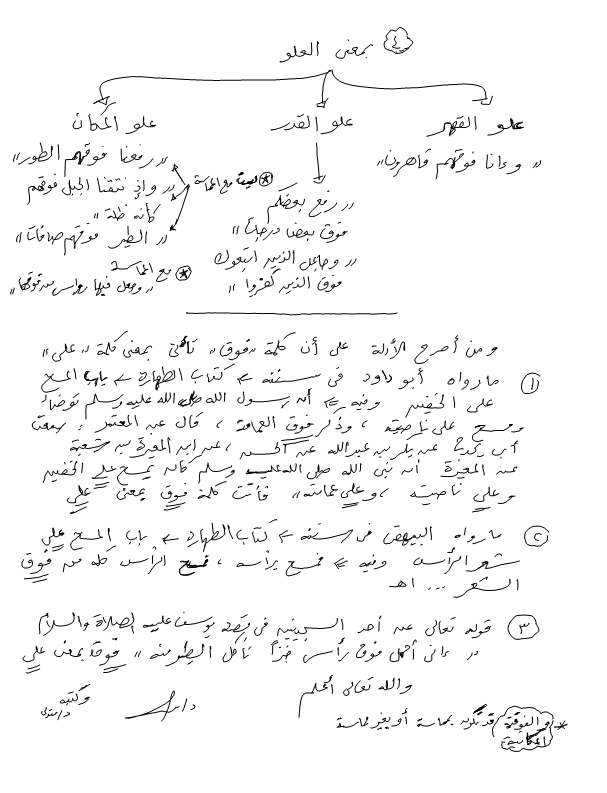 ٤ بمعنى العلو
علو القهر
علو القدر
علو المكان
" وإنا فوقهم قاهرون "
" رفع بعضكم
فوق بعض درجات "
" وجاعل الذين اتبعوك
فوق الذين كفروا "
" رفعنا فوقهم الطور "
" وإذ نتقنا الجبل فوقهم
كأنه ظلة "
" الطير فوقهم صافات "
* ليست مع المماسة
* مع المماسة
" وجعل فيها رواسي من فوقها "
ومن أصرح الأدلة على أن كلمة "فوق" تأتي بمعنى كلمة "على"
١ ما رواه أبو داود في سننه ← كتاب الطهارة ← باب المسح
على الخفين وفيه ← أن رسول الله صلى الله عليه وسلم توضأ
ومسح على ناصيته ، وذكر فوق العمامة ، قال عن المعتمر : سمعت
أبي يحدث عن بكر بن عبدالله عن الحسن ، عن ابن المغيرة بن شعبة
عن المغيرة أن نبي الله صلى الله عليه وسلم كان يمسح على الخفين
وعلى ناصيته ، وعلى عمامته " فأتت كلمة فوق بمعنى على
٢ ما رواه البيهقي في سننه ← كتاب الطهارة ← باب المسح على
شعر الرأس وفيه ← فمسح برأسه ، فمسح الرأس كله من فوق
الشعر ... اهـ
٣ قوله تعالى عن أحد السجينين في قصة يوسف عليه الصلاة والسلام
" إني أحمل فوق رأسي خبزاً تأكل الطير منه " فوق بمعنى على
والله تعالى أعلم
وكتبه
* والفوقية المكانية قد تكون بمماسة أو بغير مماسة